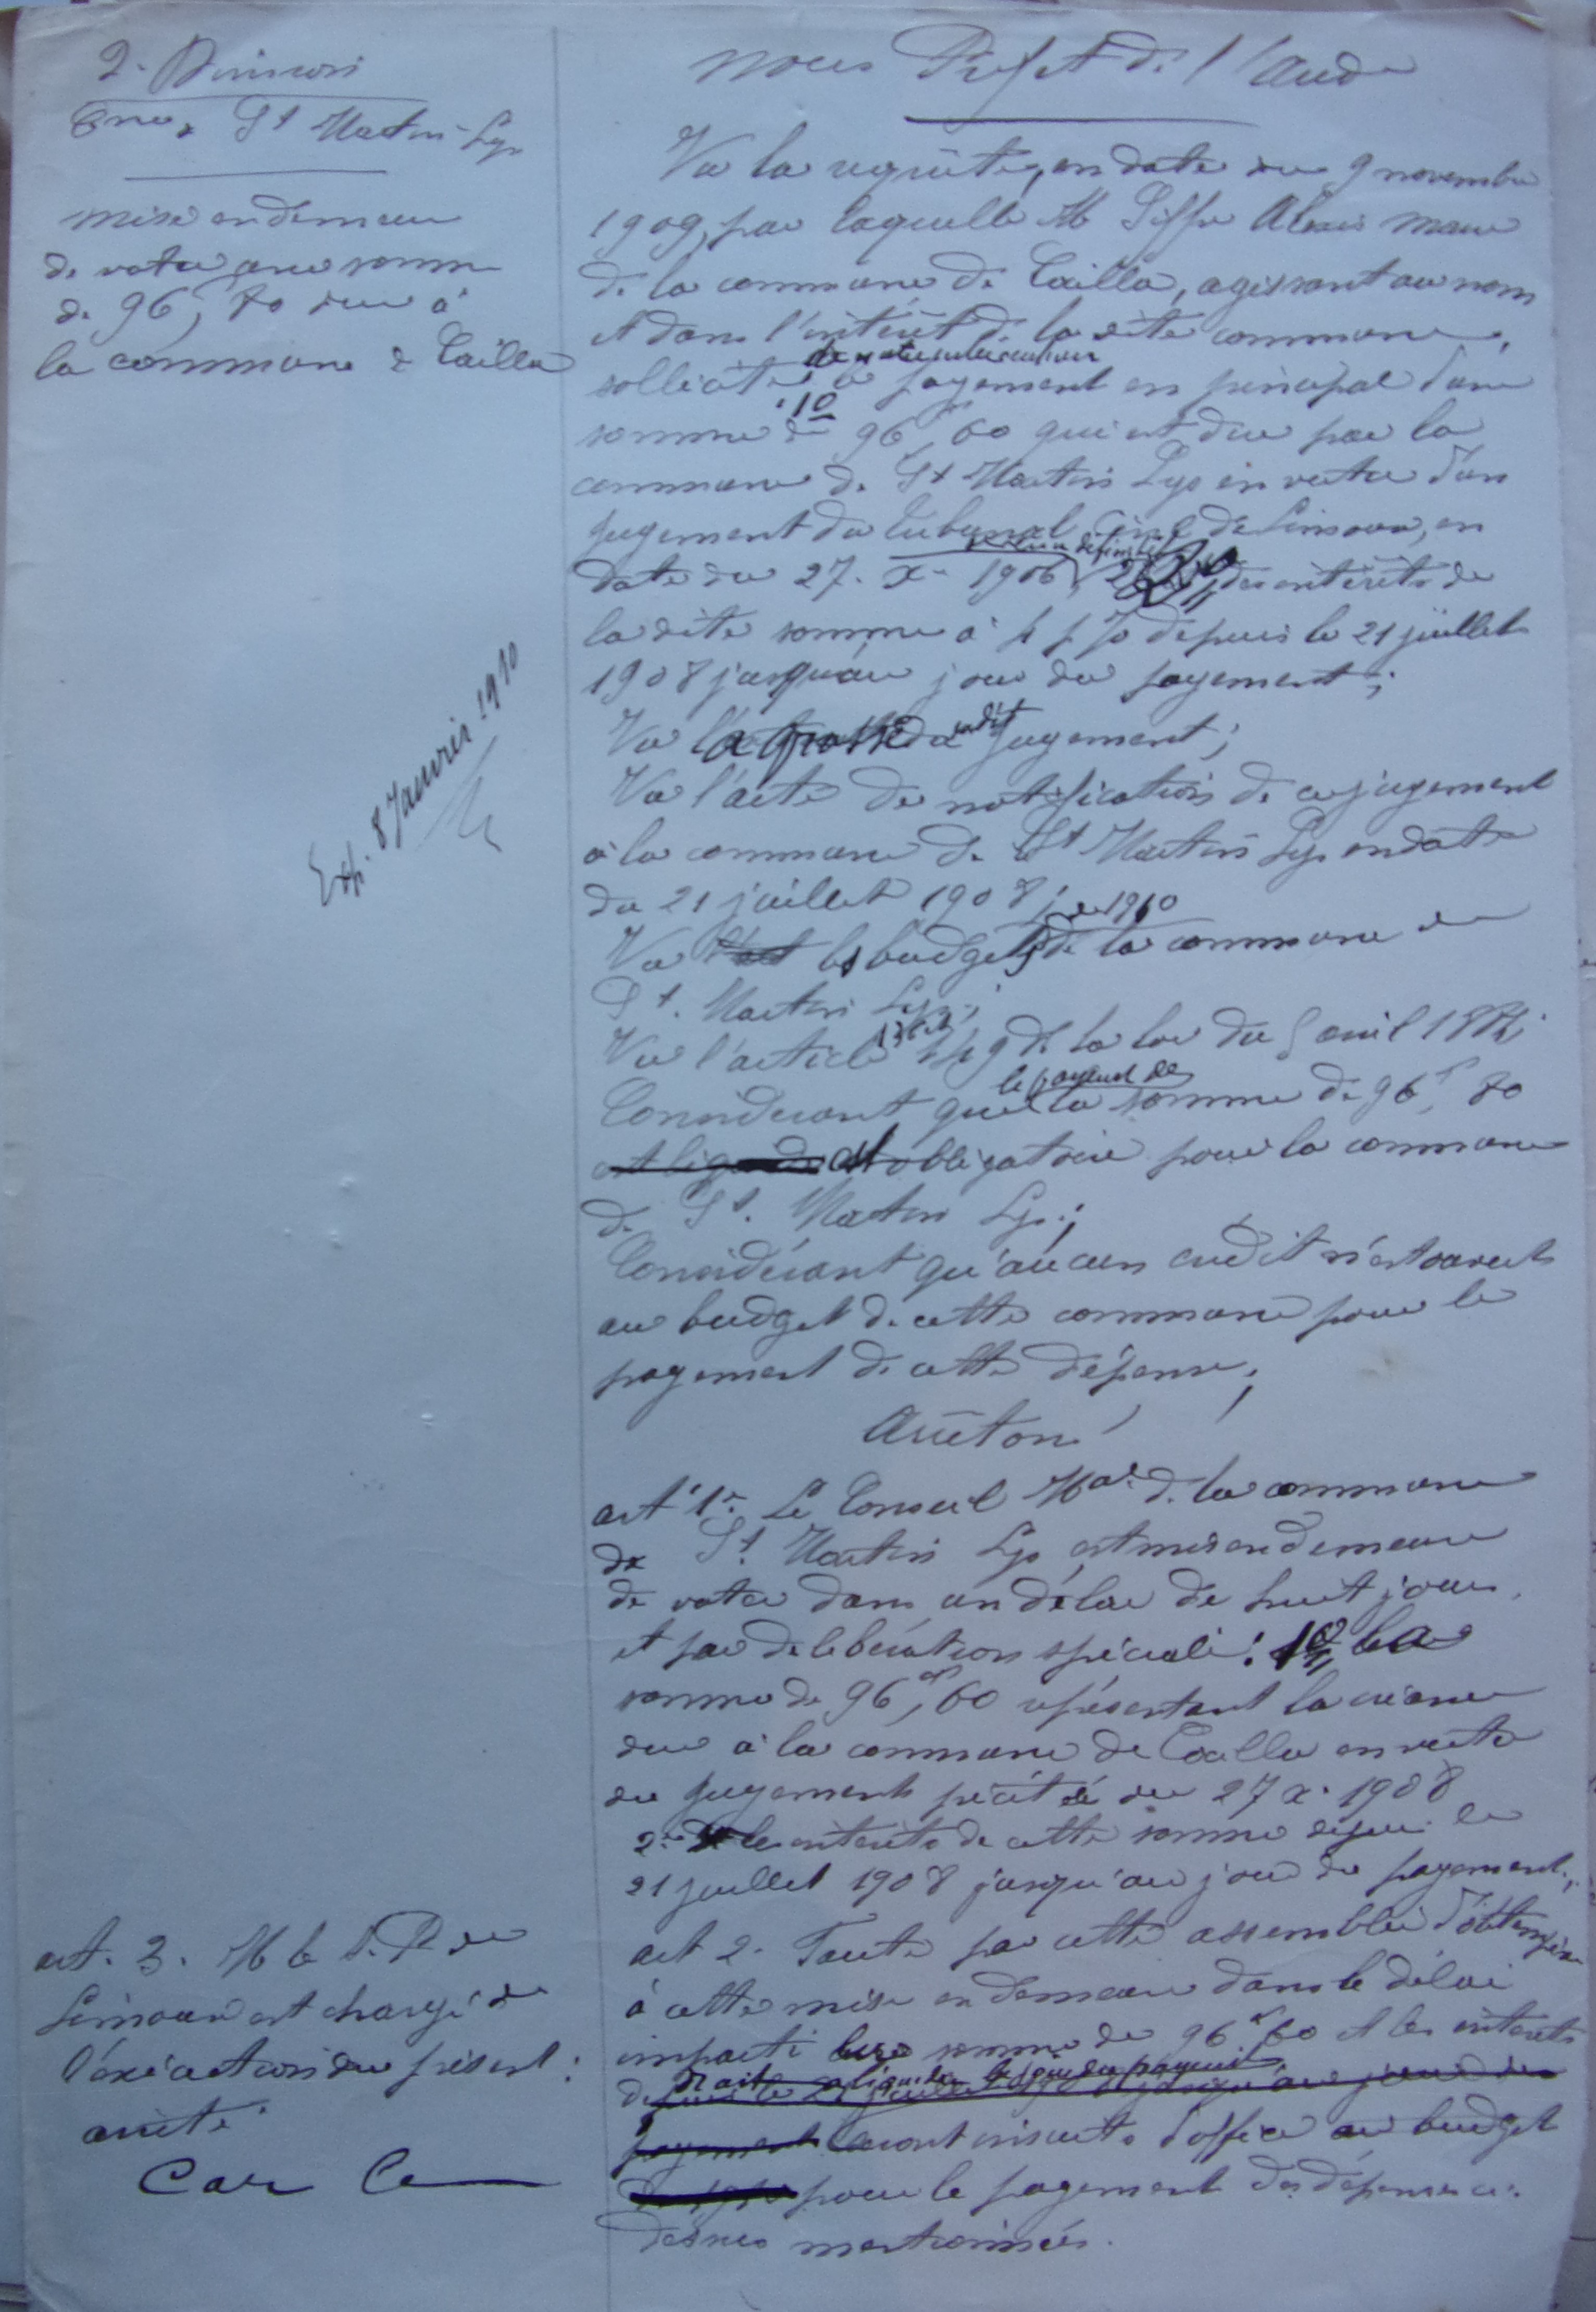 2e Division
Cne de St Martin-Lys
mise en demeure
de voter une somme
de 96f,80 due à
la commune de Cailla
Exp. 8 Janvier 1910
Nous Préfet de l'Aude
Vu la requête, en date du 9 novembre
1909, par laquelle M Siffre Alexis maire
de la commune de Cailla, agissant au nom
et dans l'intérêt de la dite commune,
sollicite le payement en principal d'une
1o
somme de 96f,60 qui est due par la
commune de St Martin Lys en vertu d'un
jugement du tribunal civil de Limoux, en
date du 27. Xe 1906, 2o des intérêts de
la dite somme à depuis le 21 juillet
1908 jusqu'au jour du payement;
Vu la grosse du dit jugement;
Vu l'acte de notification de ce jugement
à la commune de St Martin Lys en date
du 21 juillet 1908;
de 1910
Vu le budget de la commune de
St. Martin Lys;
Vu l'article 149 de la loi du 5 avril 1884;
le payement de
Considérant que la somme de 96f,80
est obligatoire pour la commune
de St. Martin Lys;
Considérant qu'aucun crédit n'est ouvert
au budget de cette commune pour le
payement de cette dépense;
Arrêtons
art 1er. Le Conseil Mal de la commune
de St. Martin Lys est mis en demeure
de voter dans un délai de huit jours
et par délibération spéciale: 1o la
somme de 96f,60 représentant la créance
due à la commune de Cailla en vertu
du jugement précité du 27 Xe 1908
2o les intérêts de cette somme depuis le
21 juillet 1908 jusqu'au jour du payement;
art 2. Faute par cette assemblée d'obtempérer
à cette mise en demeure dans le délai
imparti la somme de 96f,60 et les intérêts
à liquider le jour du payement
depuis le 21 juillet 1908 jusqu'au jour du
payement seront inscrits d'office au budget
de 1910 pour le payement des dépenses ci-
dessus mentionnées.
art. 3. M le S.P. de
Limoux est chargé de
l'exécution du présent
arrêté